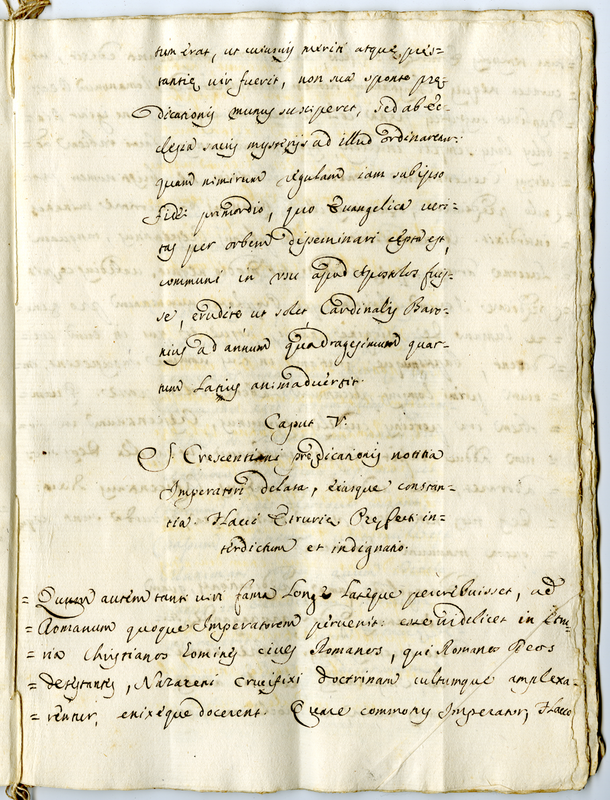 tum erat, ut cuiusvis meriti atque præs=
tantiæ vir fuerit, non sua sponte præ=
dicationis munus susciperet, sed ab ec=
clesiæ sacris mysterijs ad illud ordinaretur:
quam nimirum regulam iam sub ipso
fidei primordio, quo Evangelica veri=
tas per orbem disseminari cæpta est,
communi in usu apud Apostolos fuis=
se, erudite ut solet Cardinalis Baro=
nius ad annum quadragesimum quar=
tum Latius animadvertit.
Caput V.
S. Crescentini prædicationis notitia
Imperatori delata, eiusque constan=
tia. Flacci Etruriæ Præfecti in=
terdictum et indignatio.
= Quum autem tanti viri fama Longe Lateque percrebuisset, ad
= Romanum quoque Imperatorem pervenit: esse videlicet in Etru=
= ria Christianos homines cives Romanos, qui Romanos Deos
= detestantes, Nazareni crucifixi doctrinam cultumque amplexa=
= rentur, enixeque docerent. Quare commotus Imperator, Flacco